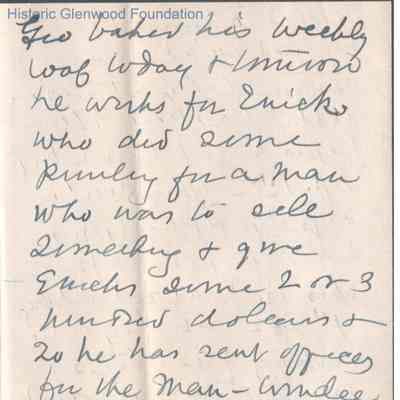 Historic Glenwood Foundation
Geo baked his weekly
loaf today + tomorrow
he works for
who did some
for a man
who was to sell
something + give
some 2 or 3
hundred dollars +
so he has sent officers
for the man -